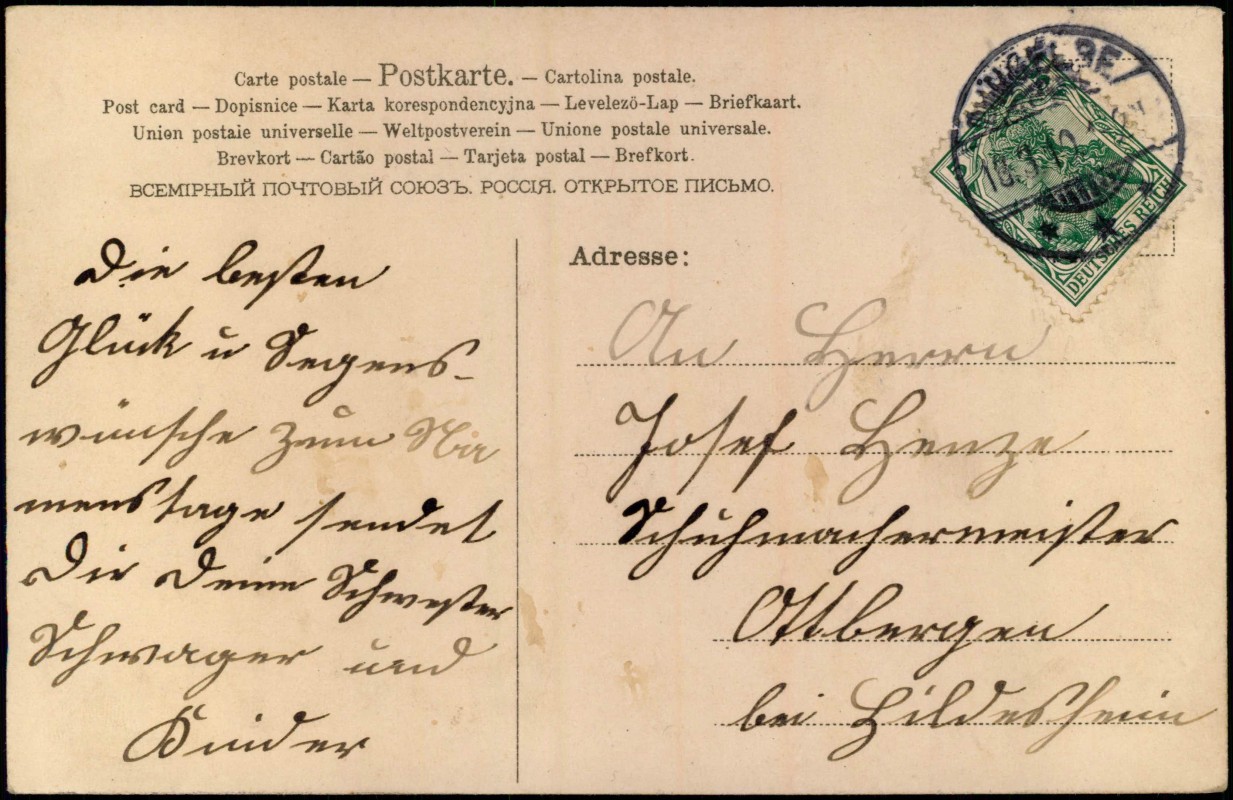 Carte postale — Postkarte. — Cartolina postale.
Post card — Dopisnice — Karta korespondencyjna — Levelezö-Lap — Briefkaart.
Union postale universelle — Weltpostverein — Unione postale universale.
Brevkort — Cartão postal — Tarjeta postal — Brefkort.
ВСЕМІРНЫЙ ПОЧТОВЫЙ СОЮЗЪ. РОССІЯ. ОТКРЫТОЕ ПИСЬМО.
DEUTSCHES REICH
Die besten
Glück u Segens-
wünsche zum Na
menstage sendet
Dir Deine Schwester
Schwager und
Kinder
Adresse:
An Herrn
Josef Henze
Schuhmachermeister
Ottbergen
bei Hildesheim